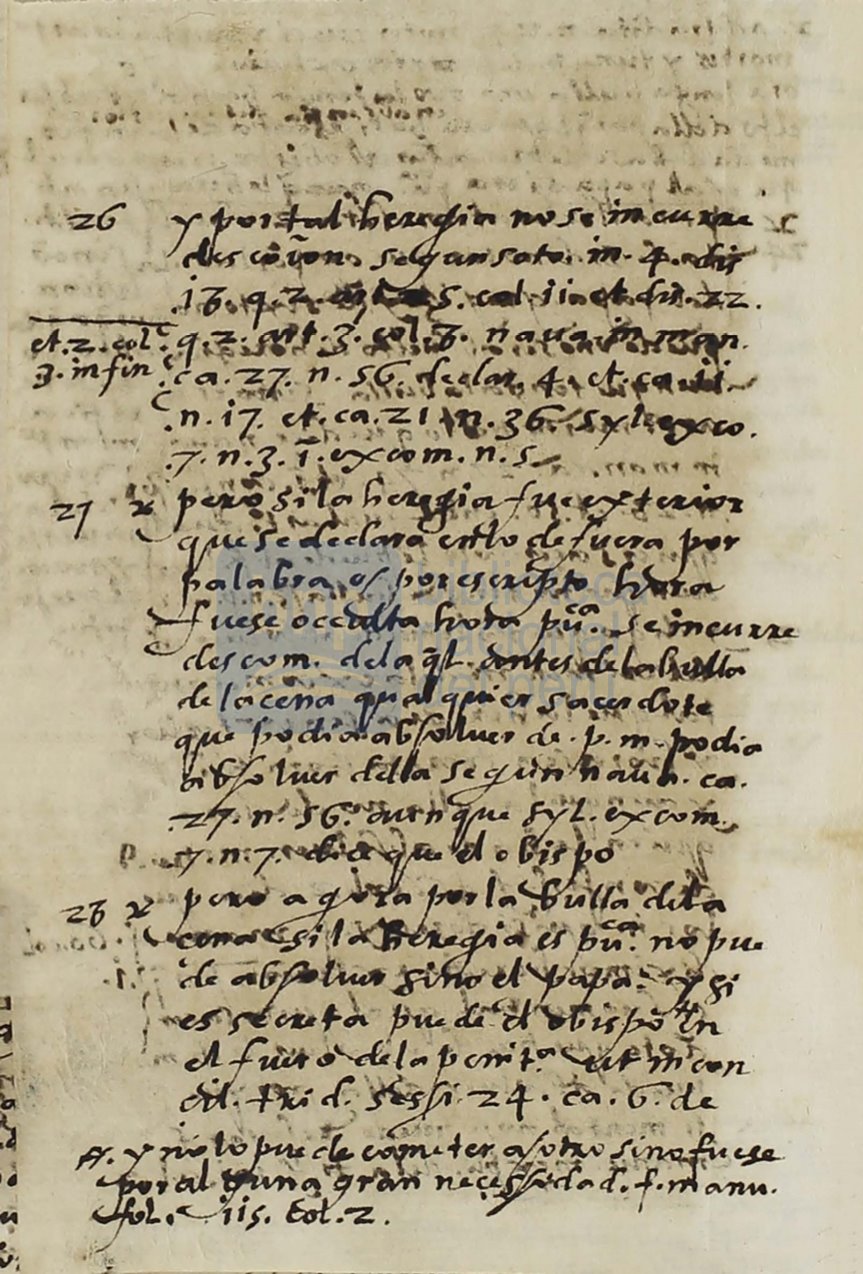 26 y por tal heregia no se incurre
descoīon. segun soto. in. 4. dis
18. q. 2. art. 5. col. ii. et dis. 22.
et. 2. col. q. 2. art. 3. col. 8. naua. in man.
3. in fin. ca. 27. n. 56. declar. 4. et. ca. ii.
.n. 17. et. ca. 21. n. 36. syl. exco.
.7. n. 3. ī. excom. n. 5.
27 pero si la heregia fue exterior
que se declara en lo de fuera por
palabra o/ por escripto hora
fuese occulta hora pūca. se incurre
descom. de la q̄l. antes de la bulla
de la cena qualquier sacerdote
que podia absoluer de .p. m. podia
absoluer della segun naua. ca.
.27. n. 56. aunque syl. excom.
.7. n. 7. dice que el obispo
28 pero agora por la bulla de la
cena si la heregia es pūca. no pue
de absoluer sino el papa. y si
es secreta puede el obispo en
el fuero de la penit.a ut in con
cil. trid. sessi. 24. ca. 6. de
rr. y no lo puede cometer a/ otro sino fuese
por alguna gran necessidad. f. manu.
fol. iis. col. 2.